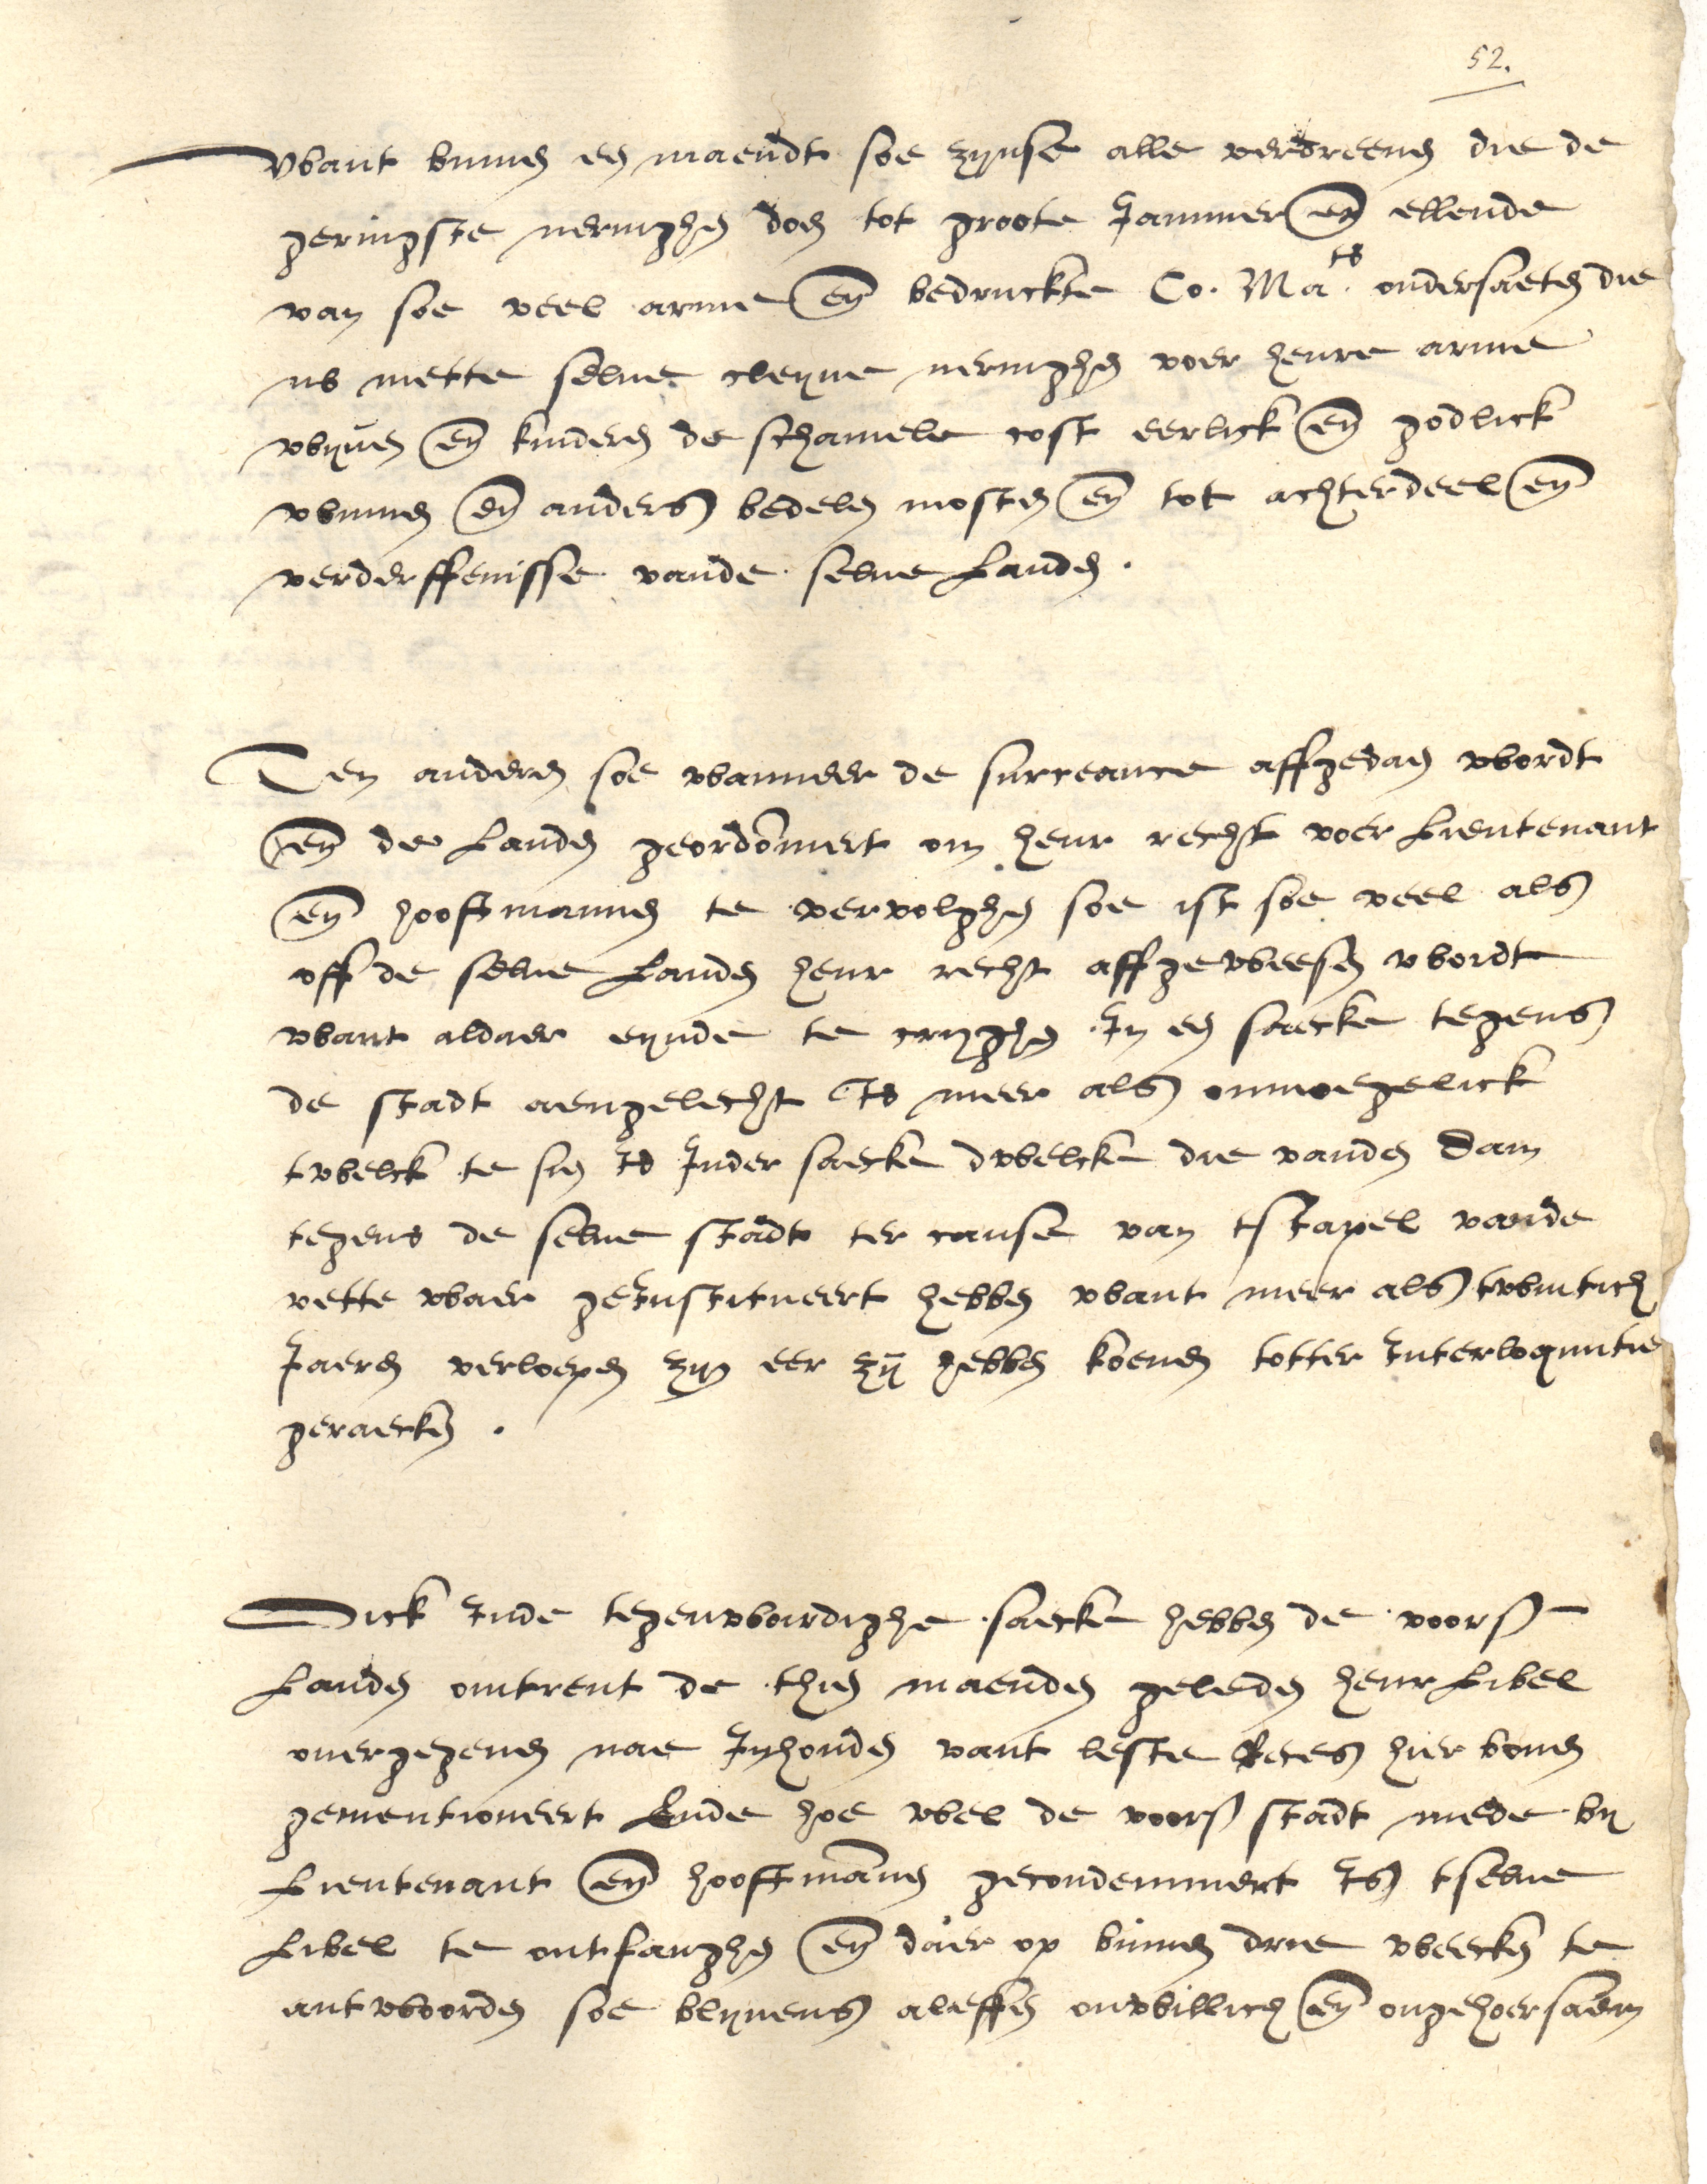 52.
Want binnen een maendt soe zijnse alle verdreeuen die de
geringste neringhen doen tot groote Jammer en ellende
van soe veel arme en bedruckte Co. Ma.ts ondersaeten die
nv mette selue cleyne neringhen voer heure arme
wijuen en kinderen de schamele cost eerlick en godlick
winnen en anders bedelen mosten en tot achterdeel en
verderffenisse vande selue Landen.
Ten anderen soe wanneer de surceance affgedaen wordt
en de Landen geordonneert om heur recht voer Lieutenant
en hooftmannen te vervolghen soe ist soe veel als
off de selue Landen heur recht affgeweesen wordt
want aldaer eynde te cryghen In een saecke tegens
de stadt aengelecht Is meer als onmoegelick
twelck te sien Is Inder saecke dwelcke die vanden Dam
tegens de selue stadt ter cause van tstapel vande
vette waer geInstitueert hebben want meer als twintich
Jaeren verloepen zijn eer zij hebben koenen totter Interloqutie
geraecken.
Oick Inde tegenwoirdighe saecke hebben de voors
Landen omtrent de thien maenden geleden heur Libel
ouergegeuen nae Inhouden vant leste Reces hier bouen
gementioneert Ende hoe wel de voors stadt mede by
Lieutenant en hooftmannen gecondemneert Is tselue
Libel te ontfanghen en daer op binnen drie weecken te
antwoorden soe blyuens aleffen onwillich en ongehoersaem